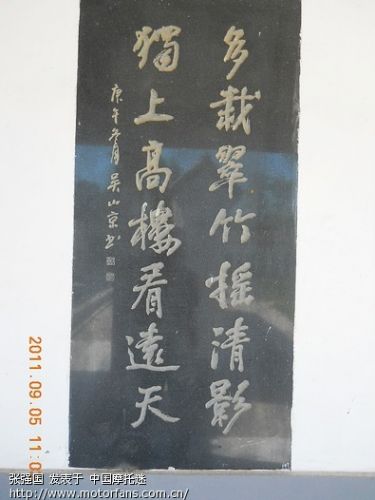 多栽翠竹摇清影
獨上高樓看遠天
庚午冬月吴山京书
2011.09.05 11:0
张强国 发表于 中国摩托迷
http://www.motorfans.com.cn/